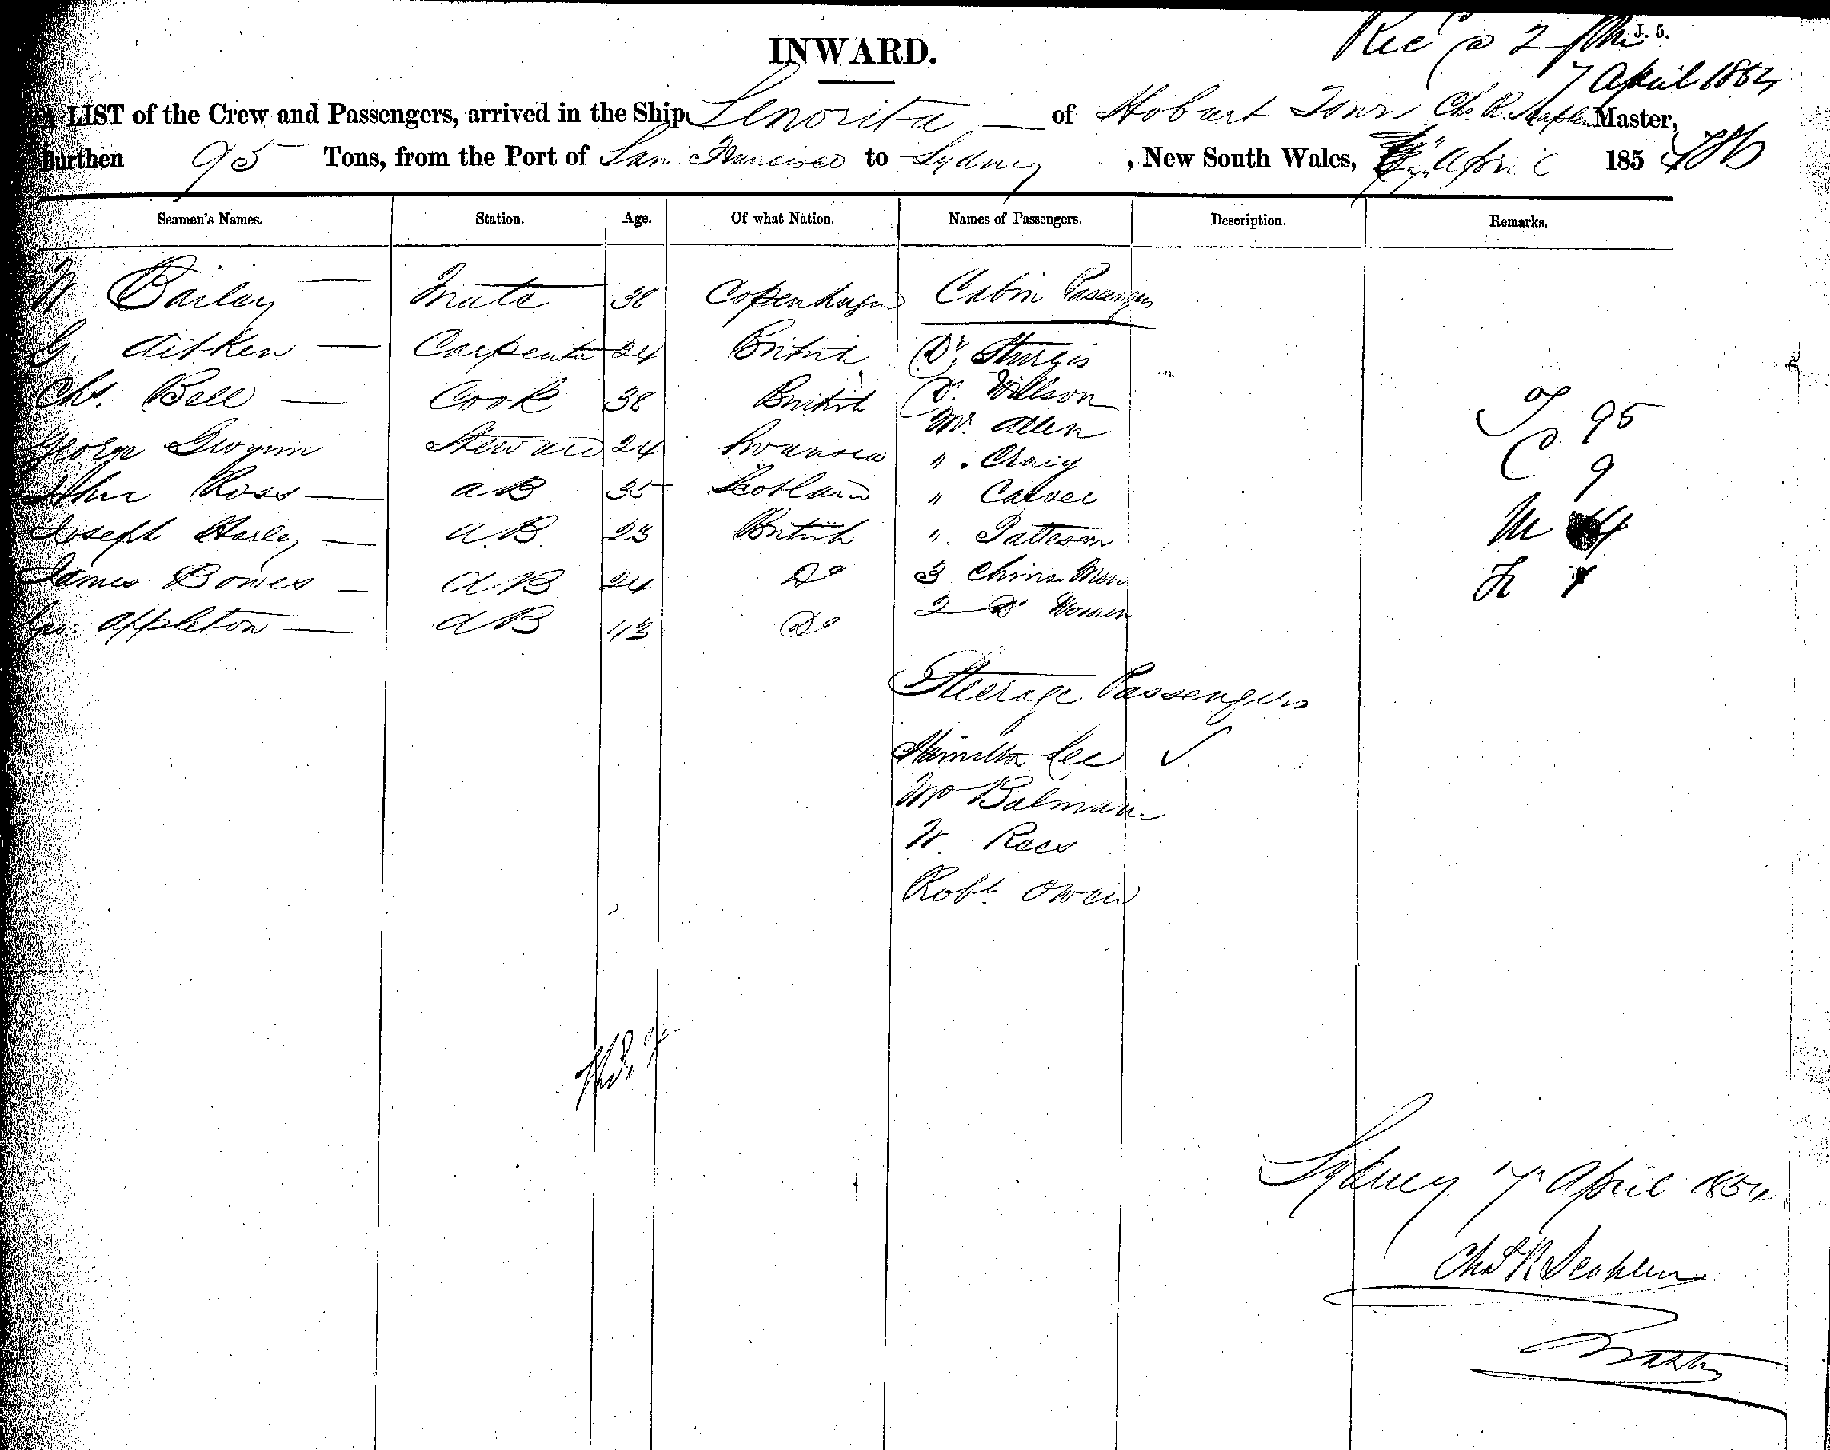 INWARD.
Rec @ 2 pm J. 5.
7 April 1854
LIST of the Crew and Passengers, arrived in the Ship Senorita of Hobart Town Chs R. Master,
Burthen 95 Tons, from the Port of San Francisco to Sydney, New South Wales, April 1854
Seamen's Names. Station. Age. Of what Nation. Names of Passengers. Description. Remarks.
W Bailey Mate 38 Copenhagen Cabin Passengers
G. Aitken Carpenter 24 British Dr. Sturgis
Chs. Bell Cook 38 British Dr. Willson
Mr. Allen
T 95
George Steward 24 Swansea " Craig
C 9
Ross AB 35 Scotland " Carver
Joseph Harley A.B. 23 British " Patteson
M 4
James Bowes AB 24 Do 3 China Men
F
Appleton AB 43 Do 2 Do Women
Steerage Passengers
Hamilton Lee ✓
Mr Balmain
W. Rees
Robt. Owen
Sydney 7 April 1854
Chas R
Master